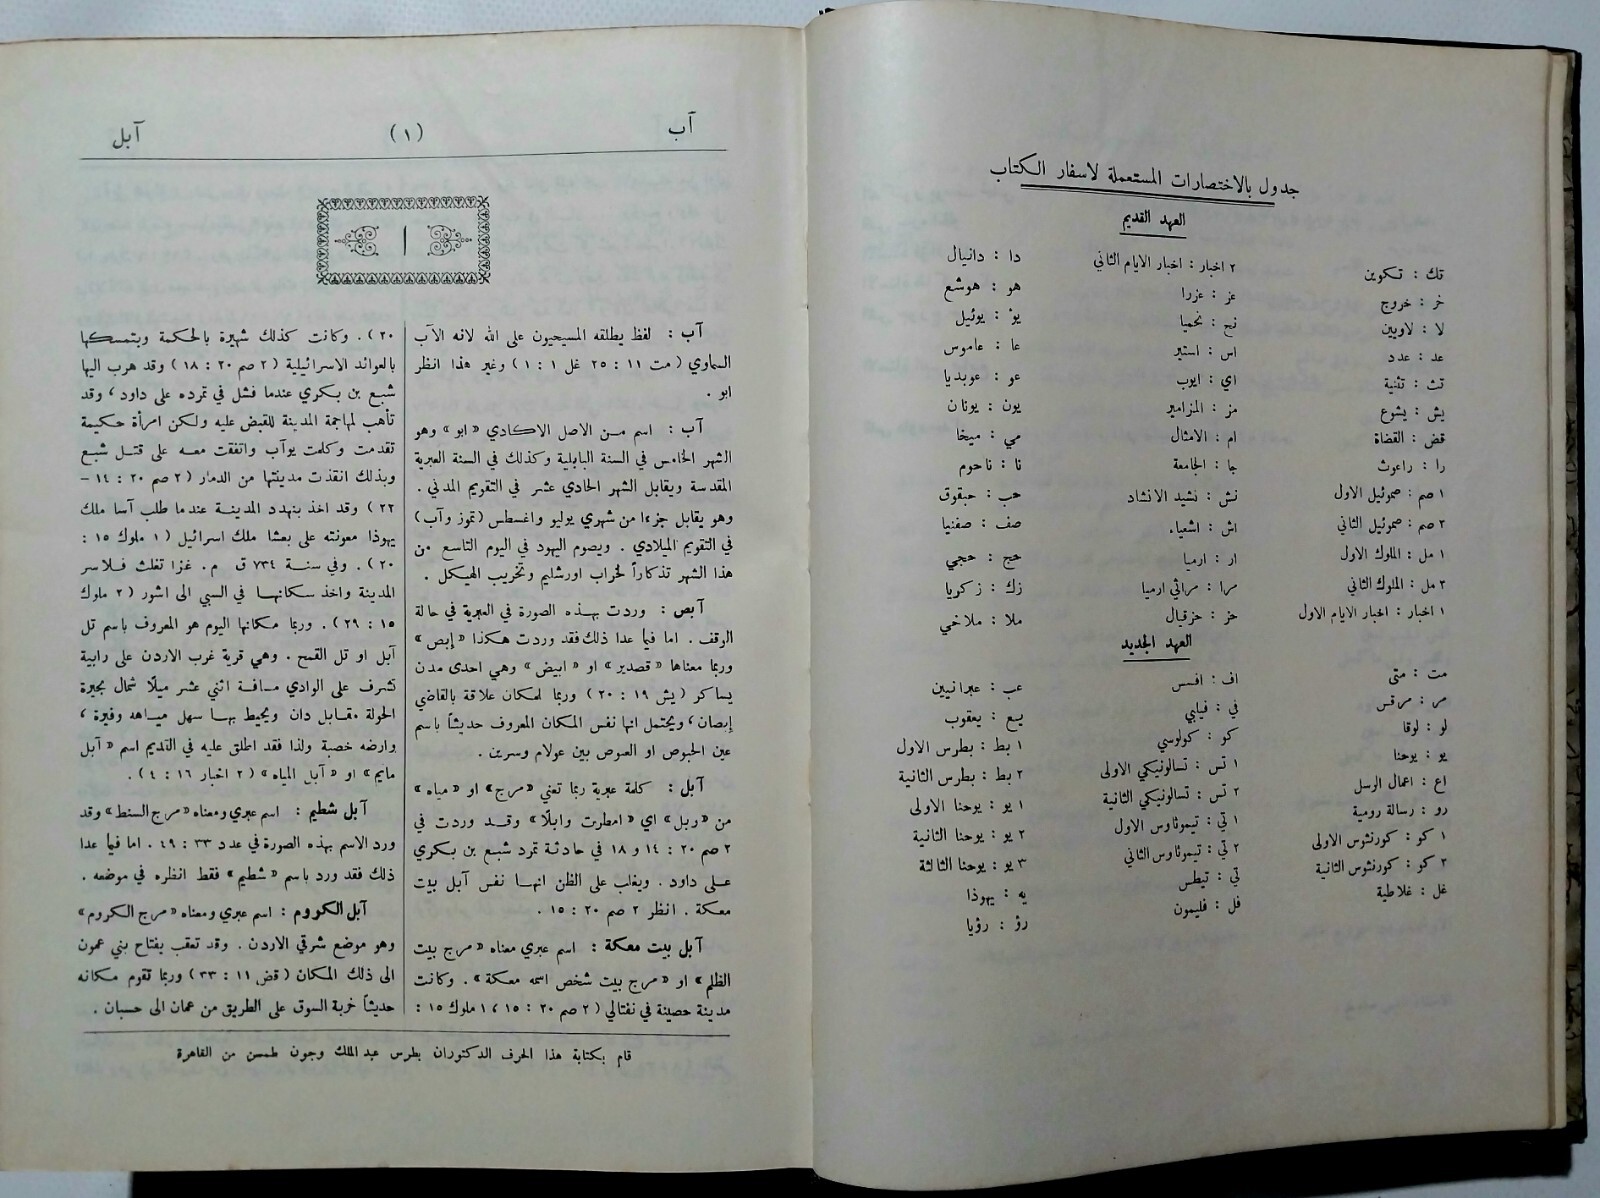 جدول بالاختصارات المستعملة لاسفار الكتاب
العهد القديم
تك : تكوين
خر : خروج
لا : لاويين
عد : عدد
تث : تثنية
يش : يشوع
قض : القضاة
را : راعوث
١ صم : صموئيل الاول
٢ صم : صموئيل الثاني
١ مل : الملوك الاول
٢ مل : الملوك الثاني
١ اخبار : اخبار الايام الاول
٢ اخبار : اخبار الايام الثاني
عز : عزرا
نح : نحميا
اس : استير
اي : ايوب
مز : المزامير
ام : الامثال
جا : الجامعة
نش : نشيد الانشاد
اش : اشعياء
ار : ارميا
مرا : مراثي ارميا
حز : حزقيال
دا : دانيال
هو : هوشع
يؤ : يوئيل
عا : عاموس
عو : عوبديا
يون : يونان
مي : ميخا
نا : ناحوم
حب : حبقوق
صف : صفنيا
حج : حجي
زك : زكريا
ملا : ملاخي
العهد الجديد
مت : متى
مر : مرقس
لو : لوقا
يو : يوحنا
اع : اعمال الرسل
رو : رسالة رومية
١ كو : كورنثوس الاولى
٢ كو : كورنثوس الثانية
غل : غلاطية
اف : افسس
في : فيلبي
كو : كولوسي
١ تس : تسالونيكي الاولى
٢ تس : تسالونيكي الثانية
١ تي : تيموثاوس الاول
٢ تي : تيموثاوس الثاني
تي : تيطس
فل : فليمون
عب : عبرانيين
يع : يعقوب
١ بط : بطرس الاول
٢ بط : بطرس الثانية
١ يو : يوحنا الاولى
٢ يو : يوحنا الثانية
٣ يو : يوحنا الثالثة
يه : يهوذا
رؤ : رؤيا
آب (١) آبل
ا
آب : لفظ يطلقه المسيحيون على الله لانه الآب
السماوي ( مت ١١ : ٢٥ غل ١ : ١ ) وغير هذا انظر
ابو .
آب : اسم من الاصل الاكادي « ابو » وهو
الشهر الخامس في السنة البابلية وكذلك في السنة العبرية
المقدسة ويقابل الشهر الحادي عشر في التقويم المدني .
وهو يقابل جزءا من شهري يوليو واغسطس (تموز وآب)
في التقويم الميلادي . ويصوم اليهود في اليوم التاسع من
هذا الشهر تذكاراً لخراب اورشليم وتخريب الهيكل .
آبص : وردت بهذه الصورة في العبرية في حالة
الوقف . اما فيما عدا ذلك فقد وردت هكذا « إبص »
وربما معناها « قصدير » او « ابيض » وهي احدى مدن
يساكر ( يش ١٩ : ٢٠ ) وربما لمكان علاقة بالقاضي
إبصان ، ويحتمل انها نفس المكان المعروف حديثاً باسم
عين الحبوص او العبوص بين عولام وسرين .
آبل : كلمة عبرية ربما تعني « مرج » او « مياه »
من « ربل » اي « امطرت وابلا » وقد وردت في
٢ صم ٢٠ : ١٤ و ١٨ في حادثة تمرد شبع بن بكري
على داود . ويغلب على الظن انها نفس آبل بيت
معكة . انظر ٢ صم ٢٠ : ١٥ .
آبل بيت معكة : اسم عبري معناه « مرج بيت
الظلم » او « مرج بيت شخص اسمه معكة » . وكانت
مدينة حصينة في نفتالي ( ٢ صم ٢٠ : ١٥ ، ١ ملوك ١٥ :
٢٠ ) . وكانت كذلك شهيرة بالحكمة وبتمسكها
بالعوائد الاسرائيلية ( ٢ صم ٢٠ : ١٨ ) وقد هرب اليها
شبع بن بكري عندما فشل في تمرده على داود ، وقد
تأهب لمهاجمة المدينة للقبض عليه ولكن امرأة حكيمة
تقدمت وكلمت يوآب واتفقت معه على قتل شبع
وبذلك انقذت مدينتها من الدمار ( ٢ صم ٢٠ : ١٤ -
٢٢ ) وقد اخذ بنهدد المدينة عندما طلب آسا ملك
يهوذا معونته على بعشا ملك اسرائيل ( ١ ملوك ١٥ :
٢٠ ) . وفي سنة ٧٣٤ ق م . غزا تغلث فلاسر
المدينة واخذ سكانها في السبي الى اشور ( ٢ ملوك
١٥ : ٢٩ ) . وربما مكانها اليوم هو المعروف باسم تل
آبل او تل القمح . وهي قرية غرب الاردن على رابية
تشرف على الوادي مسافة اثني عشر ميلا شمال بحيرة
الحولة مقابل دان ويحيط بها سهل مياهه وفيرة ،
وارضه خصبة ولذا فقد اطلق عليه في القديم اسم « آبل
مايم » او « آبل المياه » ( ٢ اخبار ١٦ : ٤ ) .
آبل شطيم : اسم عبري ومعناه « مرج السنط » وقد
ورد الاسم بهذه الصورة في عدد ٣٣ : ٤٩ . اما فيما عدا
ذلك فقد ورد باسم « شطيم » فقط انظره في موضعه .
آبل الكروم : اسم عبري ومعناه « مرج الكروم »
وهو موضع شرقي الاردن . وقد تعقب يفتاح بني عمون
الى ذلك المكان ( قض ١١ : ٣٣ ) وربما تقوم مكانه
حديثاً خربة السوق على الطريق من عمان الى حسبان .
قام بكتابة هذا الحرف الدكتوران بطرس عبد الملك وجون طمسن من القاهرة